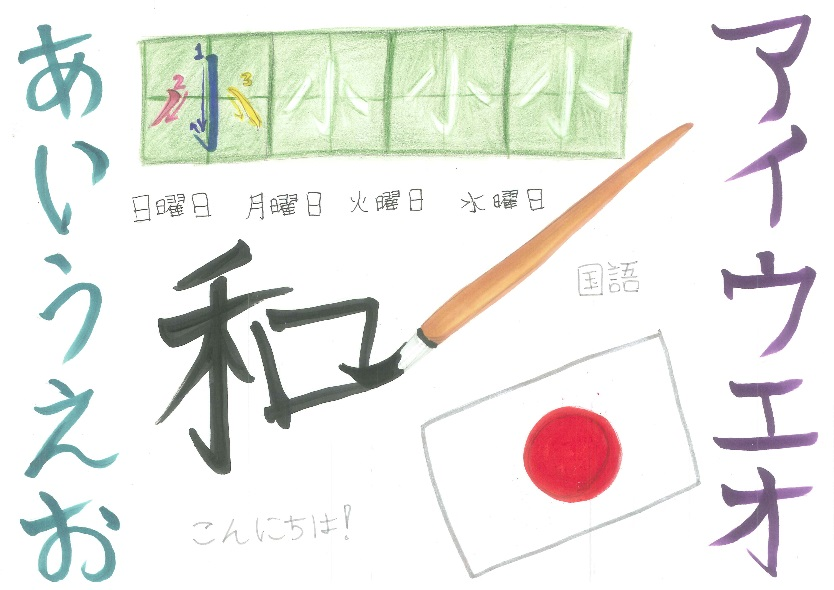 あいうえお
1 2 3
小小小小
日曜日 月曜日 火曜日 水曜日
和
国語
こんにちは!
アイウエオ